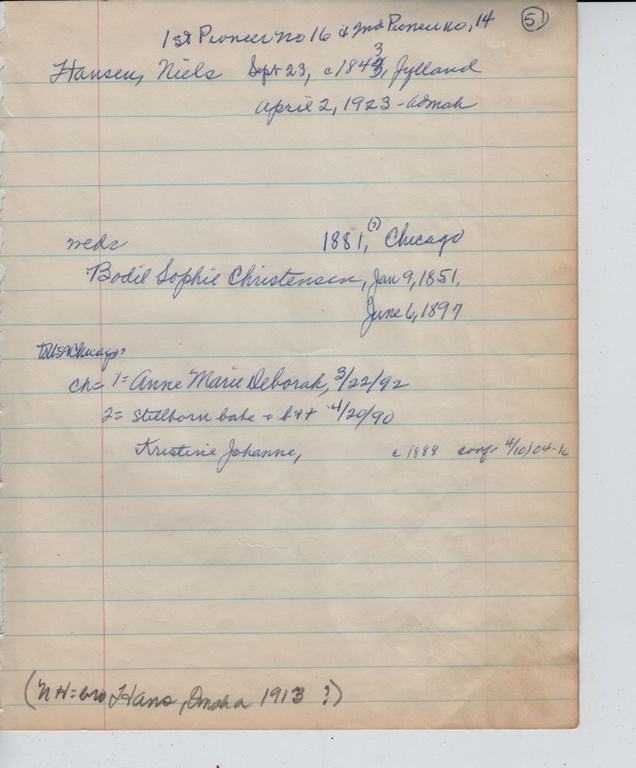 51
1st Pioneer no 16 & 2nd Pioneer no, 14
Hansen, Niels Sept 23, c1843, Jylland
April 2, 1923 - Admah
weds 1881, (?) Chicago
Bodil Sophie Christensen, Jan 9, 1851,
June 6, 1897
Chicago?
ch= 1= Anne Marie Deborah, 3/22/92
2= stillborn babe = b++ 4/20/90
Kristine Johanne, c 1888 conf- 4/10/04-16
(NH = bro Hans, Omaha 1913 ?)